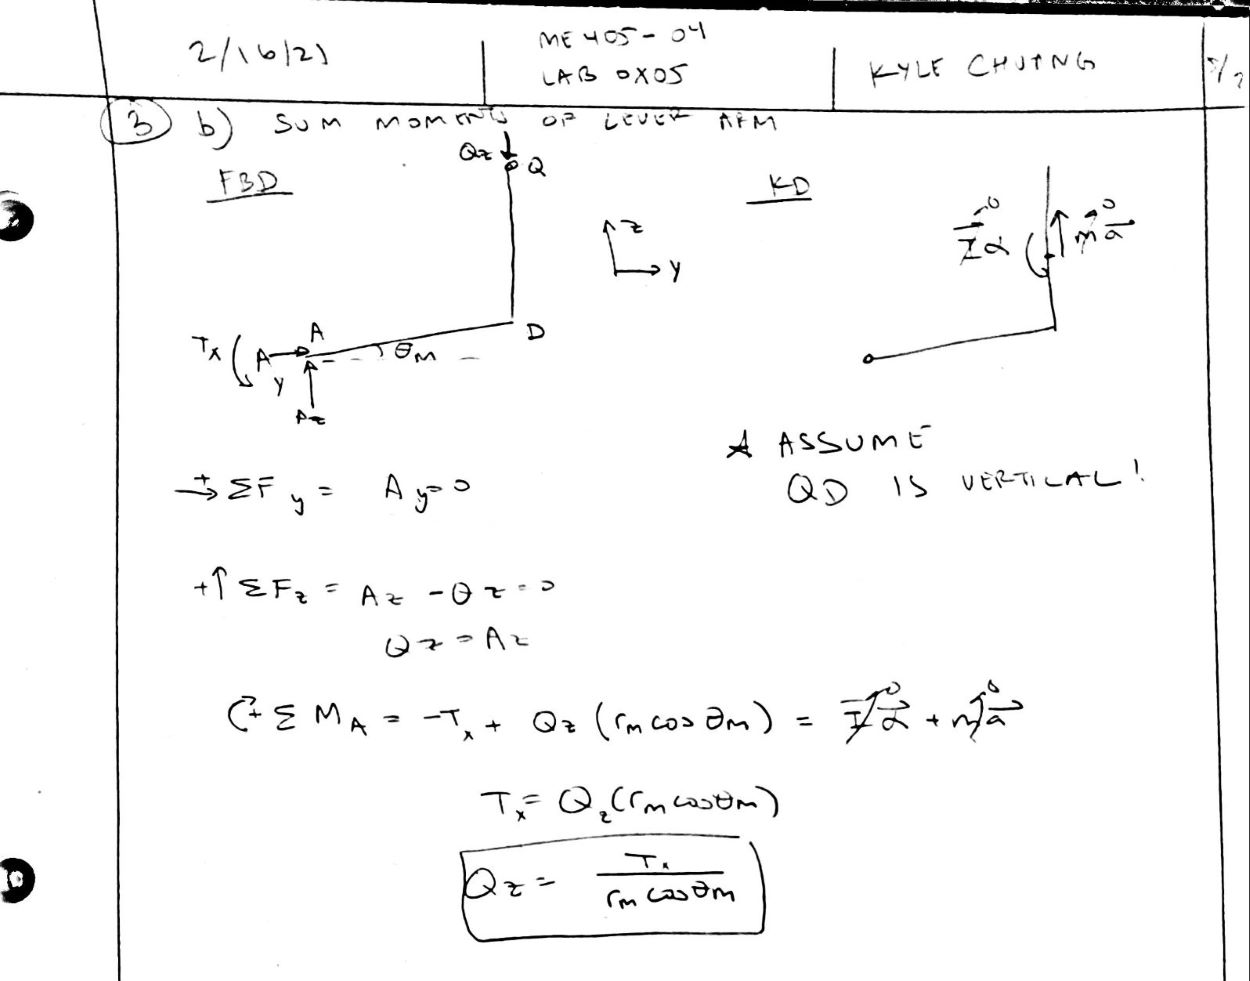 2/16/21
ME 405-04
LAB 0X05
KYLE CHUANG
3 b) SUM MOMENTS OF LEVER ARM
FBD
Qz
Q
KD
z
y
Iα 0
ma 0
Tx
Ay
A
θM
D
Az
* ASSUME
QD IS VERTICAL!
+→ ΣFy = Ay=0
+↑ ΣFz = Az - Qz = 0
Qz = Az
+ Σ MA = -Tx + Qz (rm cos θm) = Iα 0 + ma 0
Tx = Qz (rm cosθm)
Qz = Tx / (rm cosθm)